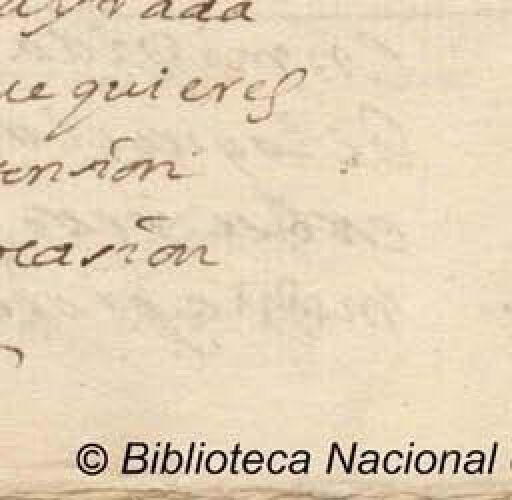 ayrada
ue quieres
ension
ocasion
© Biblioteca Nacional